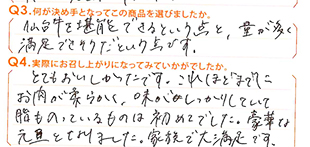 Q3.何が決め手となってこの商品を選びましたか。
仙台牛を堪能できるという点と、量が多く
満足できそうだという点です。
Q4.実際にお召し上がりになってみていかがでしたか。
とてもおいしかったです。これほどまでに
お肉が柔らかく、味がしっかりしていて
脂ものっているものは初めてでした。豪華な
元旦となりました。家族で大満足です。